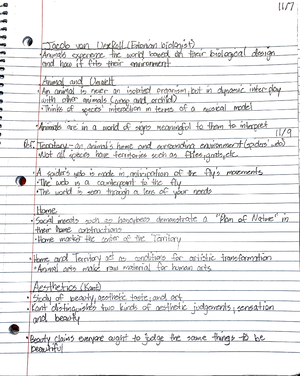 11/7
Jacob von Uexküll (Estonian biologist)
• Animals experience the world based on their biological design
and how it fits their environment
Animal and Umwelt
• An animal is never an isolated organism, but in dynamic interplay
with other animals (wasp and orchid)
• Thinks of species' interaction in terms of a musical model
• Animals are in a world of signs meaningful to them to interpret
11/9
Def: Territory - an animal's home and surrounding environment (spiders do)
• Not all species have territories such as flies, goats, etc.
• A spider's web is made in anticipation of the fly's movements
• The web is a counterpoint to the fly
• The world is seen through a lens of your needs
Home
• Social insects such as honeybees demonstrate a "Plan of Nature" in
their home constructions
• Home marks the center of the Territory
• Home and Territory act as conditions for artistic transformation
• Animal arts make raw material for human arts
Aesthetics (Kant)
• Study of beauty, aesthetic taste, and art
• Kant distinguishes two kinds of aesthetic judgements, sensation
and beauty
• Beauty claims everyone ought to judge the same things to be
beautiful